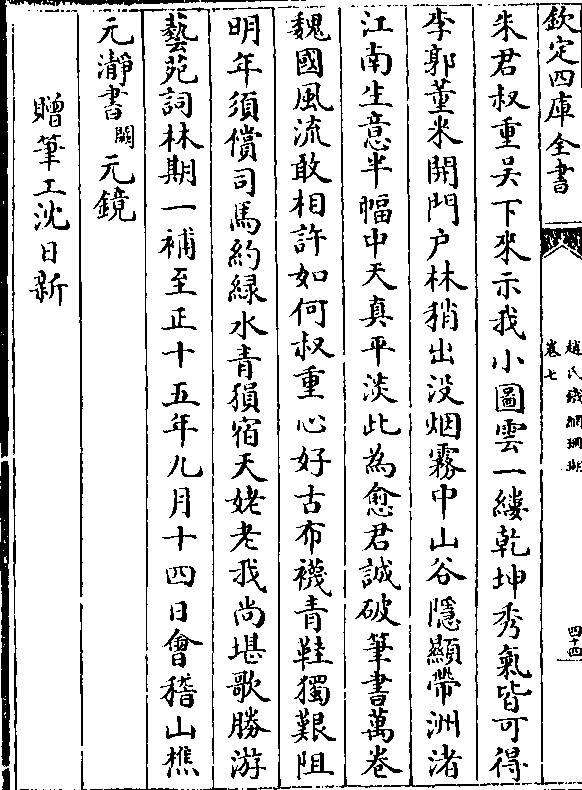 欽定四庫全書
趙氏鐵網珊瑚
卷七
四十四
朱君叔重吳下來示我小圖雲一縷乾坤秀氣皆可得
李郭董米開門户林稍出没烟霧中山谷隱顯帶洲渚
江南生意半幅中天真平淡此為愈君誠破筆書萬卷
魏國風流敢相許如何叔重心好古布襪青鞋獨艱阻
明年須償司馬約緑水青猿宿天姥老我尚堪歌勝游
藝苑詞林期一補至正十五年九月十四日會稽山樵
元瀞書 闕 元鏡
贈筆工沈日新